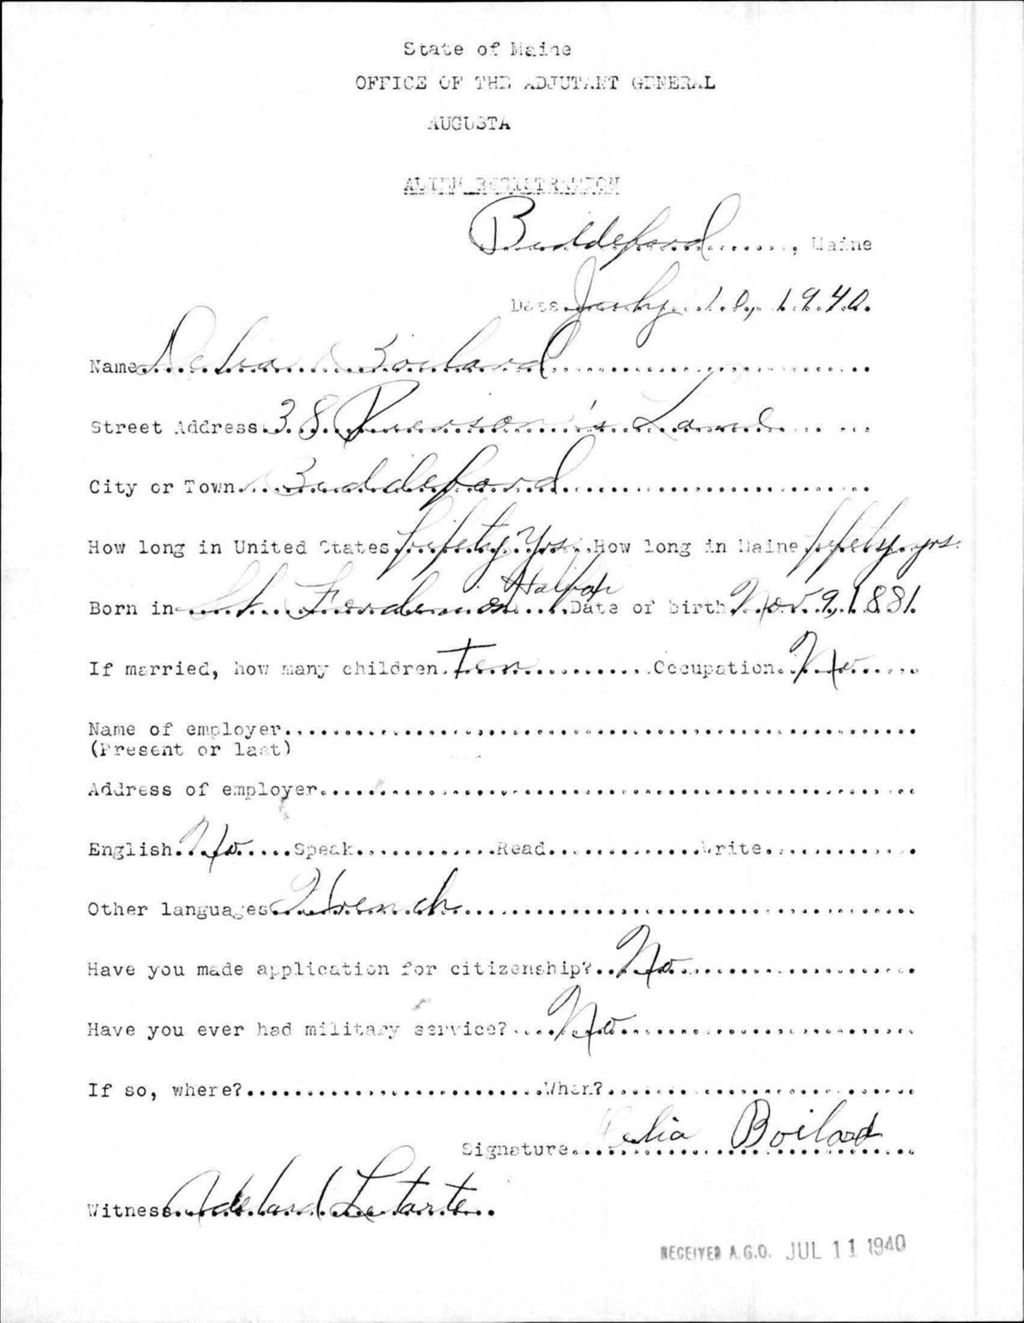 State of Maine
OFFICE OF THE ADJUTANT GENERAL
AUGUSTA
ALIEN REGISTRATION
Biddeford, Maine
Date July 10, 1940.
Name Delia Boilard
Street Address 38 Pierson's Lane
City or Town Biddeford
How long in United States fifety yrs. How long in Maine fifety yrs.
Born in St. Halifax Date of birth Nov 9, 1881.
If married, how many children ten Occupation No
Name of employer
(Present or last)
Address of employer
English No Speak Read Write
Other languages French
Have you made application for citizenship? No
Have you ever had military service? No
If so, where? When?
Signature Delia Boilard
Witness Adelard Letarte
RECEIVED A.G.O. JUL 11 1940